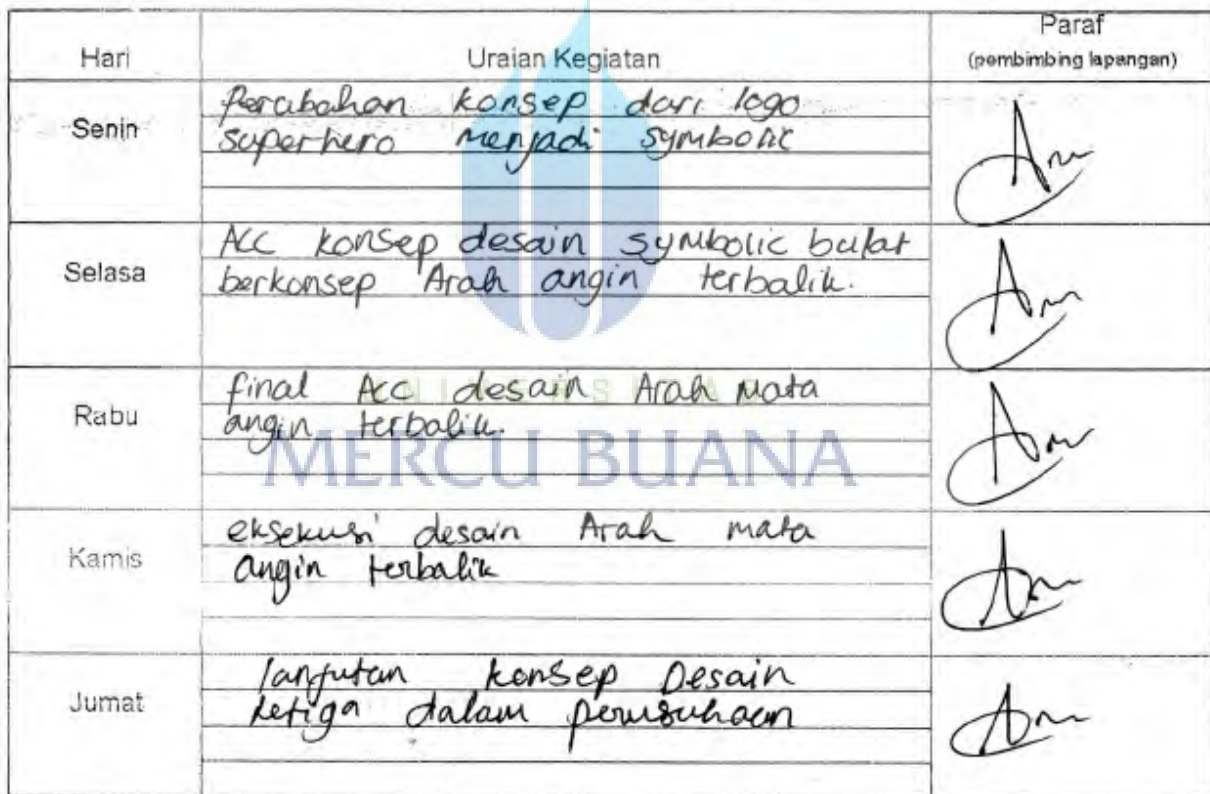 Hari Uraian Kegiatan Paraf
(pembimbing lapangan)
Senin
Perubahan konsep dari logo
superhero menjadi symbolic
Selasa
Acc konsep desain symbolic bulat
berkonsep Arah angin terbalik.
Rabu
final Acc desain Arah mata
angin terbalik.
MERCU BUANA
Kamis
eksekusi desain Arah mata
angin terbalik
Jumat
lanjutan konsep Desain
ketiga dalam perusahaan